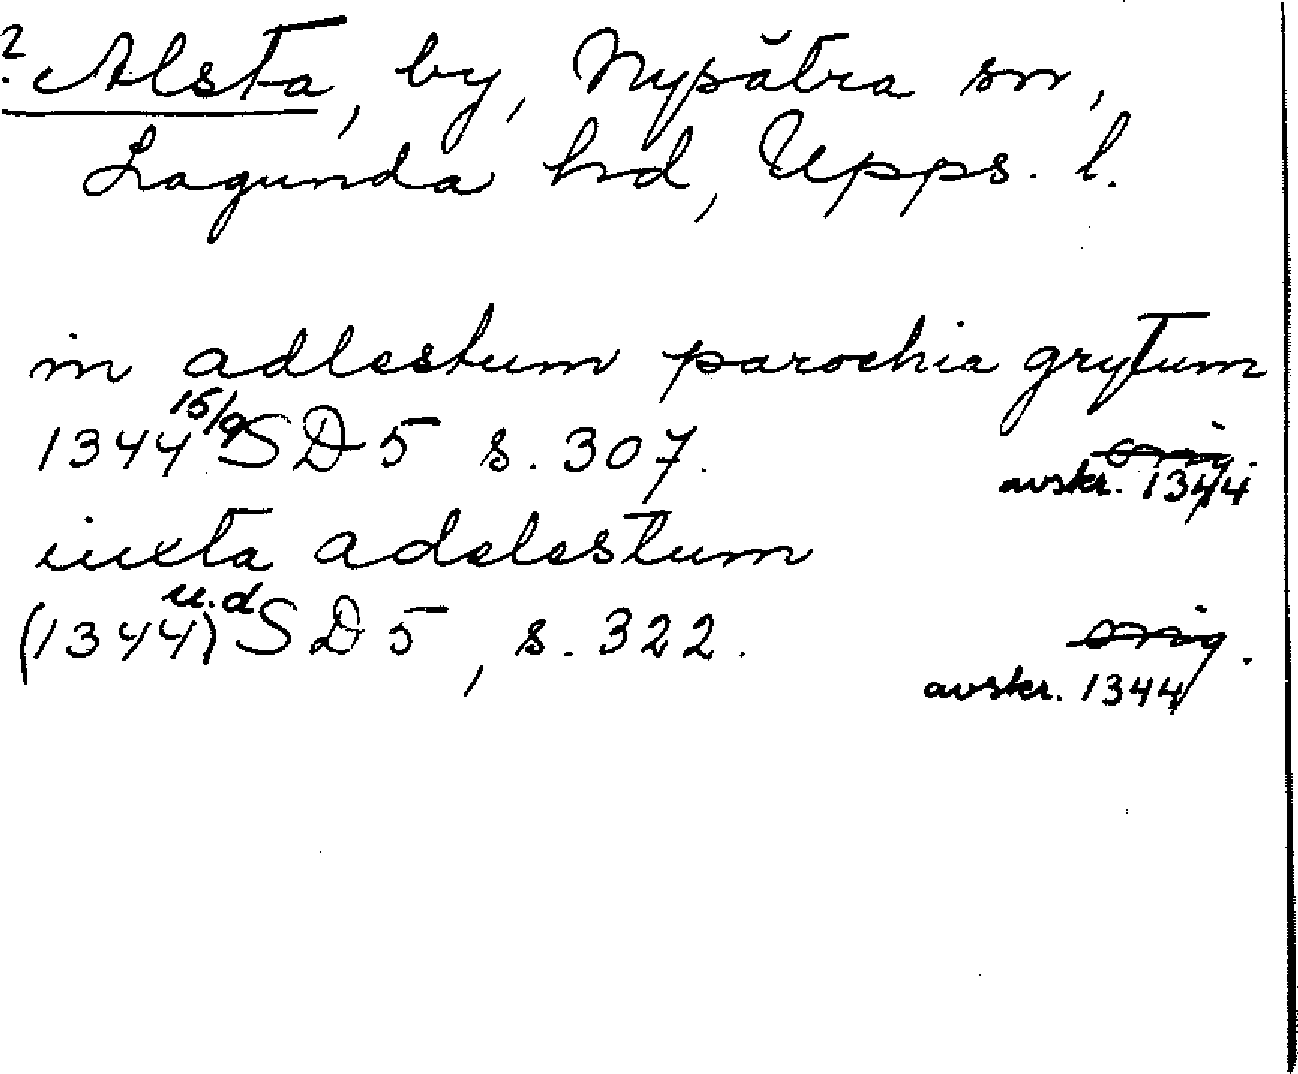 ? Alsta, by, Nypåtra sn,
Lagunda hd, Upps. l.
in adlestum parochia grytum
1344 15/9 SD 5 s. 307. orig.
avskr. 1344
iuxta adelestum
(1344) u.d SD 5, s. 322. orig.
avskr. 1344